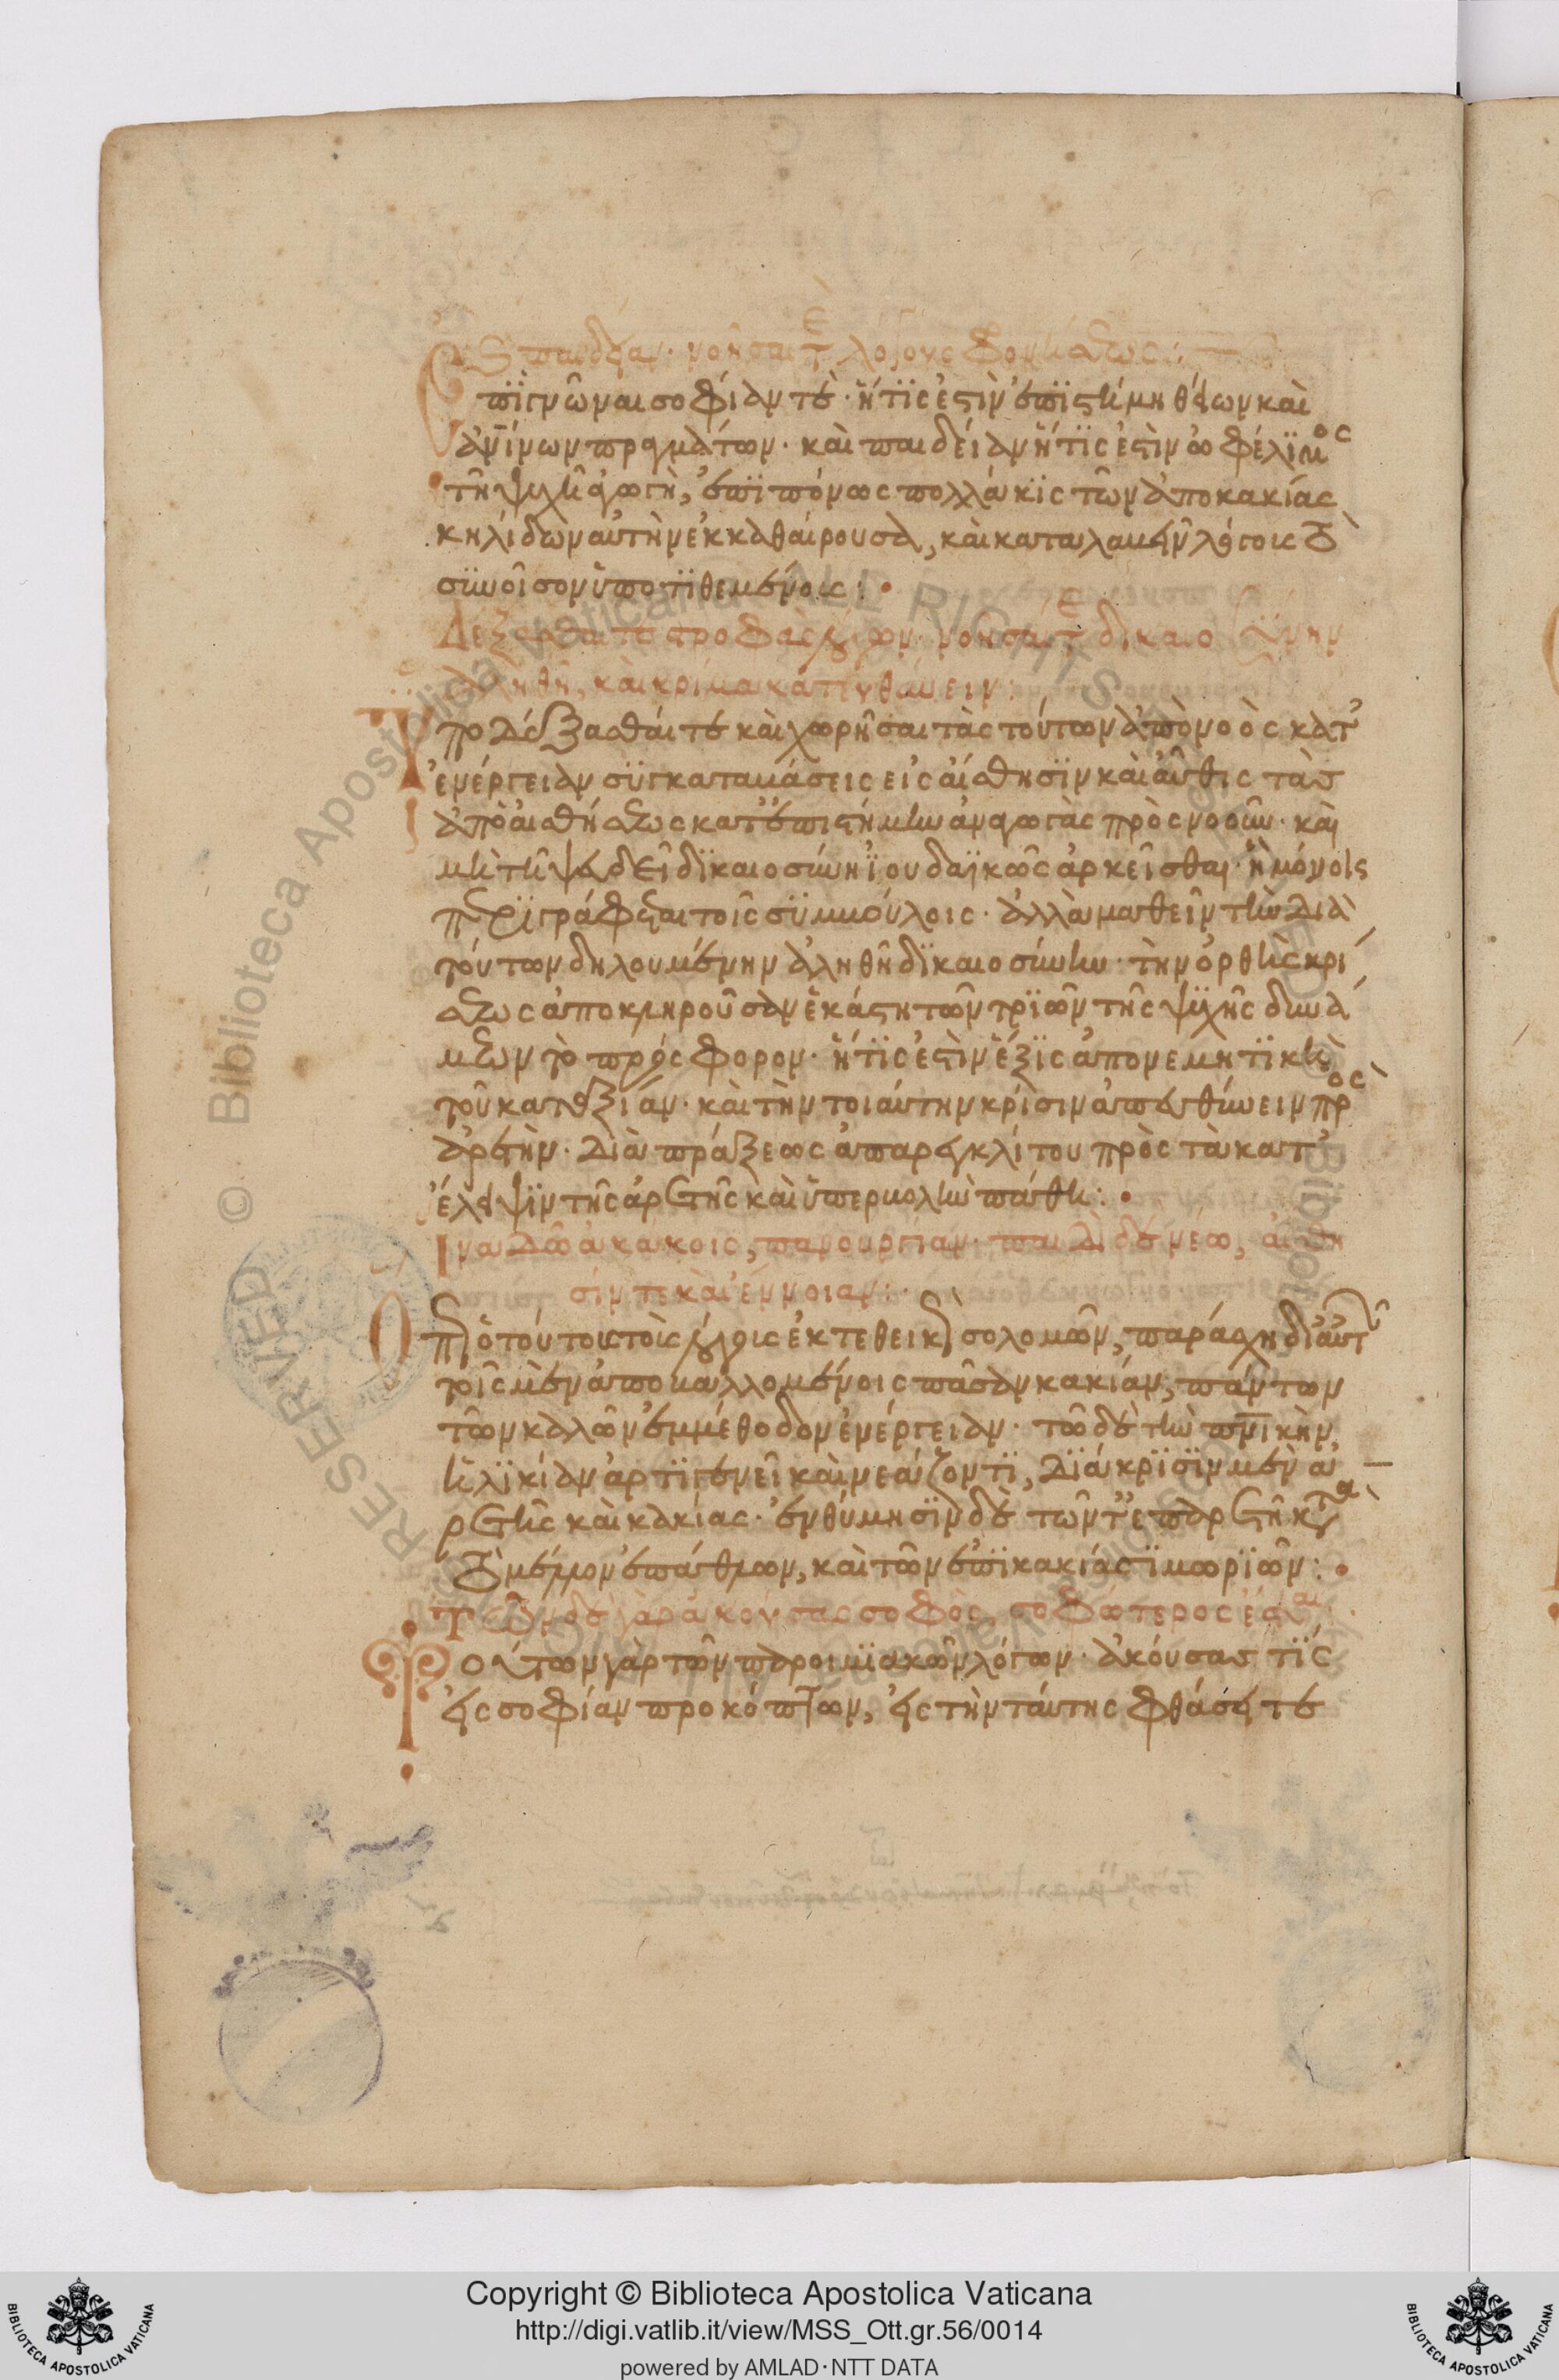 καὶ παιδείαν· νοῆσαί τε λόγους φρονήσεως:
Ἐπιγνῶναι σοφίαν τέ· ἥτις ἐστὶν ἐπιστήμη θείων καὶ
ἀνίνων πραγμάτων· καὶ παιδείαν ἥτις ἐστὶν ὠφέλιμος
τῆ ψυχῆ ἀγωγὴ, ἐπιπόνως πολλάκις τῶν ἀπο κακίας
κηλίδων αὐτὴν ἐκκαθαίρουσα, καὶ καταλαβεῖν λόγοις τὸ
συνοῖσον ὑποτιθεμένοις:
Δέξασθαί τε στροφὰς λόγων· νοῆσαί τε δικαιοσύνην
ἀληθῆ, καὶ κρίμα κατευθύνειν:
Ὑποδέξασθαί τε καὶ χωρῆσαι τὰς τούτων ἀπὸ νοὸς κατ'
ἐνέργειαν συγκαταβάσεις εἰς αἴσθησιν καὶ αὖθις τὰς
ἀπὸ αἰσθήσεως κατ' ἐπιστήμην ἀναγωγὰς πρὸς νοῦν· καὶ
μὴ τῆ ψευδεῖ δικαιοσύνη ἰουδαϊκῶς ἀρκεῖσθαι· ἢ μόνοις
περιγράφεσθαι τοῖς συμβόλοις· ἀλλὰ μαθεῖν τὴν διὰ
τούτων δηλουμένην ἀληθῆ δικαιοσύνην· τὴν ὀρθῆς κρί
σεως ἀποκληροῦσαν ἑκάστη τῶν τριῶν τῆς ψυχῆς δυνά
μεων τὸ πρόσφορον· ἥτις ἐστὶν ἕξις ἀπονεμητικὴ
τοῦ κατ' ἀξίαν· καὶ τὴν τοιαύτην κρίσιν ἀπευθύνειν πρὸς
ἀρετὴν· διὰ πράξεως ἀπαρεγκλίτου πρὸς τὰ κατ'
ἔλλειψιν τῆς ἀρετῆς καὶ ὑπερβολὴν πάθη:
Ἵνα δῶ ἀκάκοις, πανουργίαν· παιδὶ δὲ νέω, αἴσθη
σίν τε καὶ ἔννοιαν:
Ὅπερ ὁ τούτοις τοῖς λόγοις ἐκτεθεικὼς σολομῶν, παράσχη δι' αὐτῶν
τοῖς μὲν ἀποβαλλομένοις πᾶσαν κακίαν, πάντων
τῶν καλῶν ἐμμέθοδον ἐνέργειαν· τῶ δὲ τὴν πνικὴν
ἡλικίαν ἀρτιγενεῖ καὶ νεάζοντι, διάκρισιν μὲν ἀ
ρετῆς καὶ κακίας· ἐνθύμησιν δὲ τῶν τε ἐπ' ἀρετῆ κατὰ
τὸ μέλλον ἐπάθλων, καὶ τῶν ἐπὶ κακίας τιμωριῶν:
Τῶνδε γὰρ ἀκούσας σοφὸς, σοφώτερος ἔσται:
Τούτων γὰρ τῶν παροιμιακῶν λόγων· ἀκούσας τίς
εἰς σοφίαν προκόπτων, εἰς τὴν ταύτης φθάσει τε
Copyright © Biblioteca Apostolica Vaticana
http://digi.vatlib.it/view/MSS_Ott.gr.56/0014
powered by AMLAD·NTT DATA
BIBLIOTECA APOSTOLICA VATICANA
BIBLIOTECA APOSTOLICA VATICANA